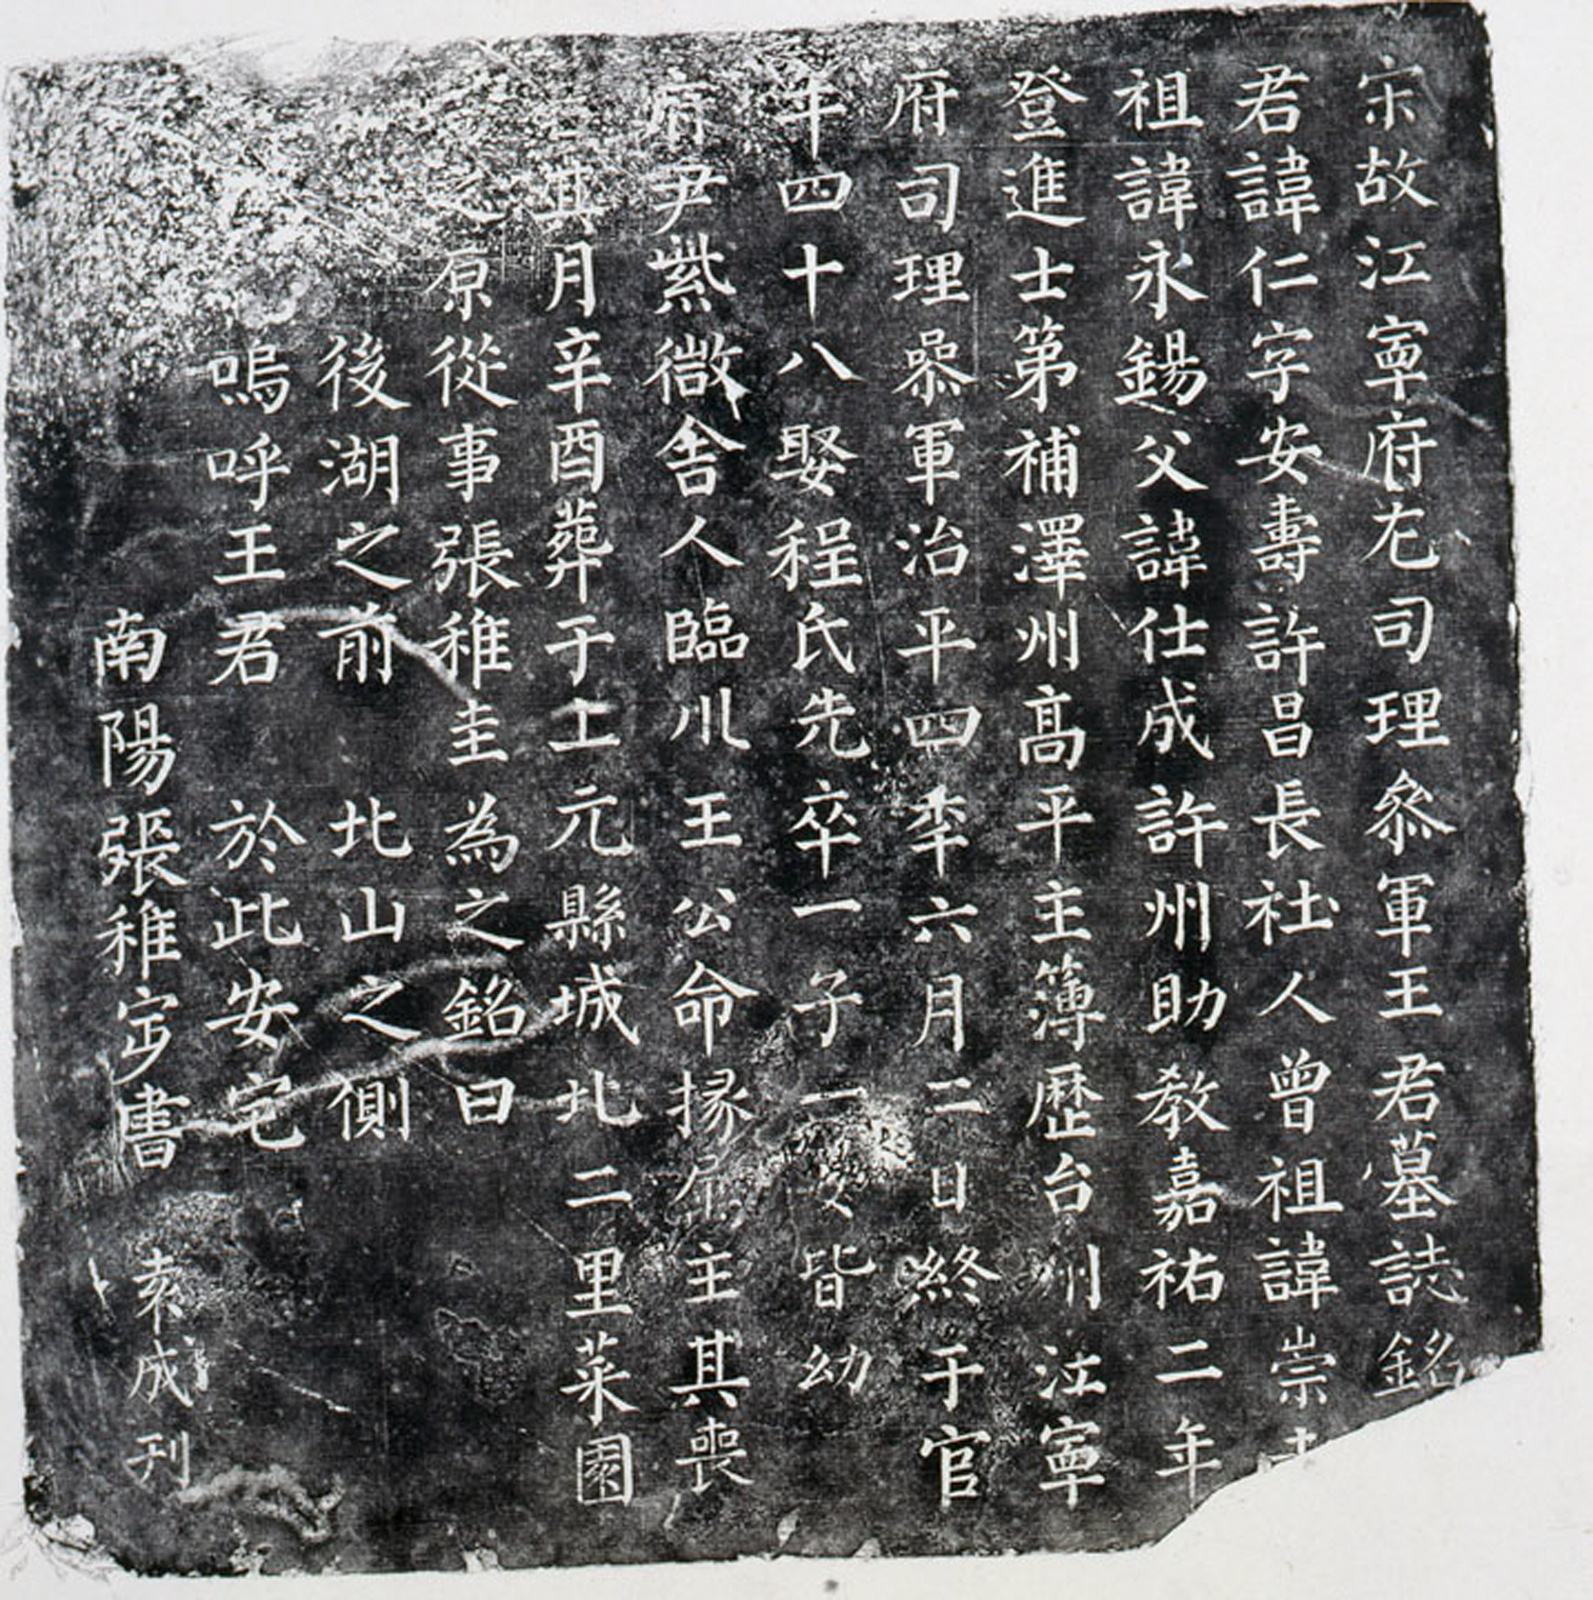 宋故江寧府左司理叅軍王君墓誌銘
君諱仁字安壽許昌長社人曾祖諱崇
祖諱永錫父諱仕成許州助教嘉祐二年
登進士第補澤州高平主簿歷台州江寧
府司理叅軍治平四年六月二日終于官
年四十八娶程氏先卒一子一女皆幼
府尹紫微舍人臨川王公命掾屬主其喪
其月辛酉葬于上元縣城北二里菜園
之原從事張稚圭為之銘曰
後湖之前 北山之側
嗚呼王君 於此安宅
南陽張稚書 成刊